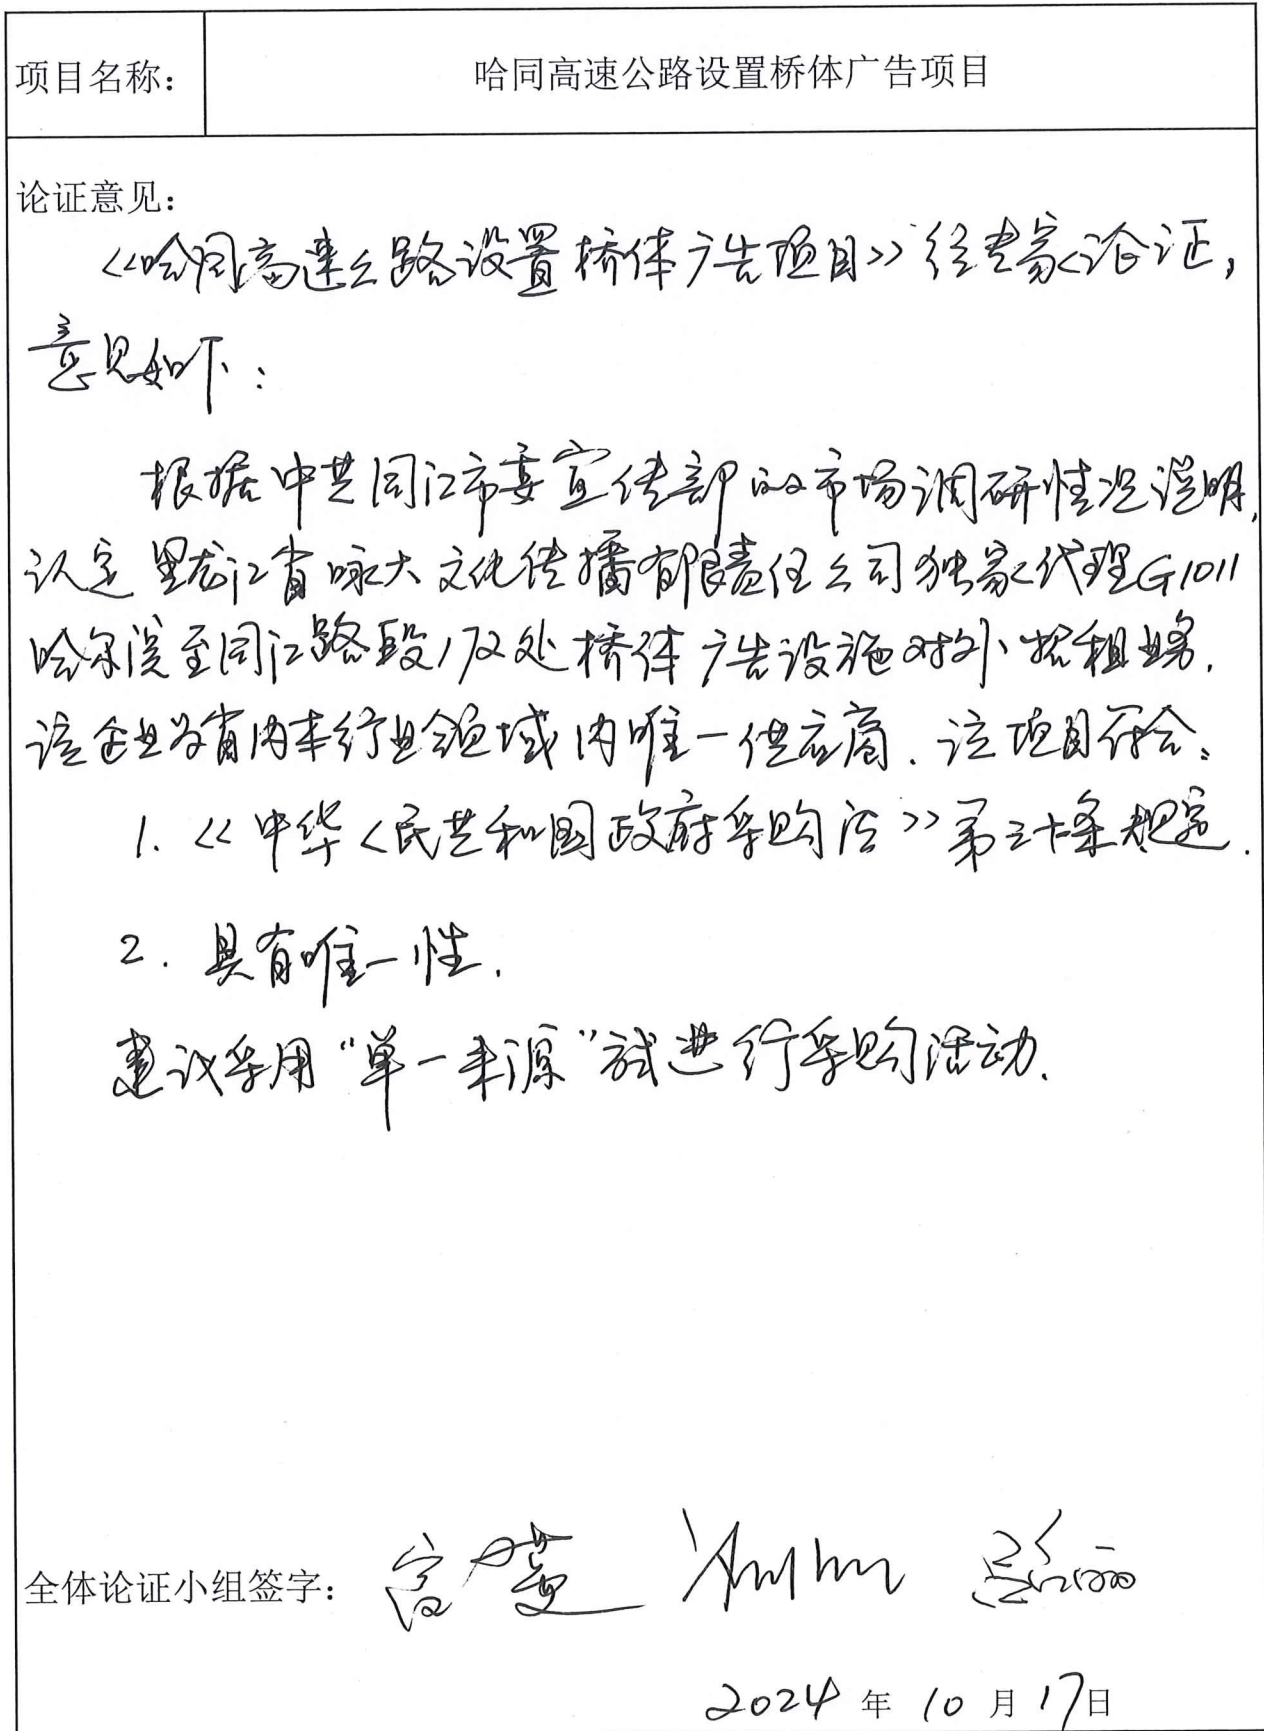 项目名称：
哈同高速公路设置桥体广告项目
论证意见：
《哈同高速公路设置桥体广告项目》经专家论证，
意见如下：
根据中共同江市委宣传部的市场调研情况说明，
认定黑龙江省咏大文化传播有限责任公司独家代理G1011
哈尔滨至同江路段17处桥体广告设施对外招租业务.
该企业为省内本行业领域内唯一供应商. 该项目符合:
1.《中华人民共和国政府采购法》第三十条规定.
2. 具有唯一性.
建议采用“单一来源”方式进行采购活动.
全体论证小组签字：
2024年10月17日